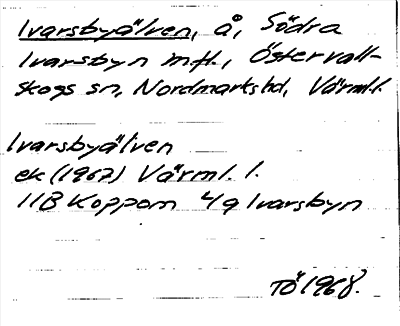 Ivarsbyälven, å, Södra
Ivarsbyn m.fl., Östervall-
skogs sn, Nordmarks hd, Värml.l.
Ivarsbyälven
ek (1967) Värml. l.
11B Koppom 4g Ivarsbyn
TÖ 1968.